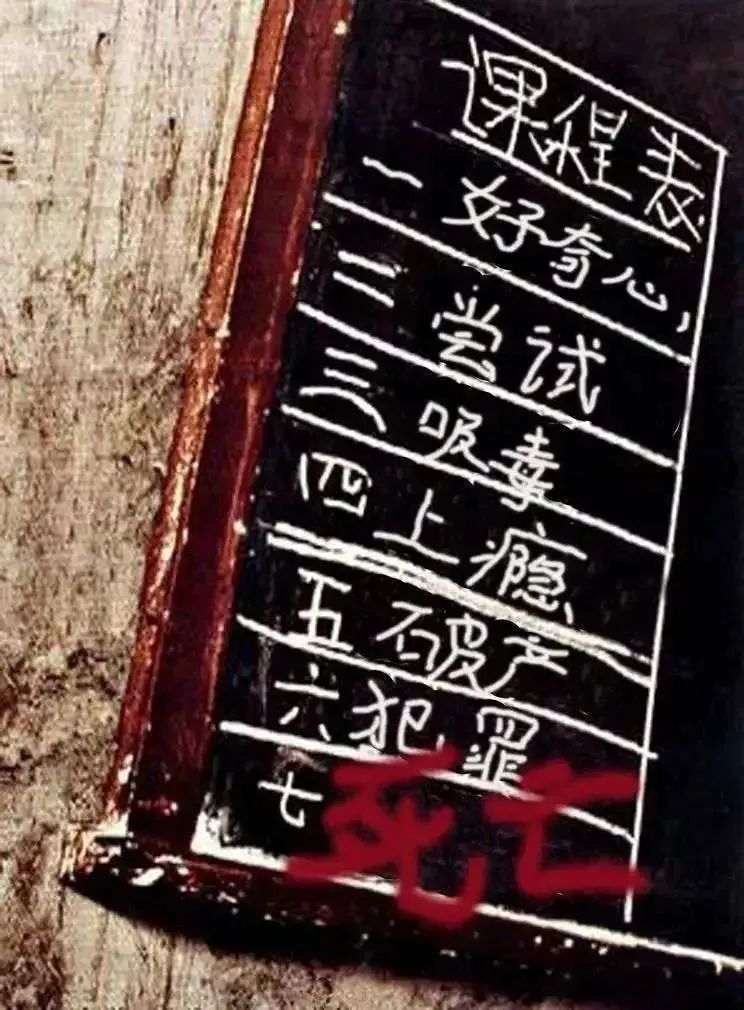 课程表
一 好奇心
二 尝试
三 吸毒
四 上瘾
五 破产
六 犯罪
七 死亡